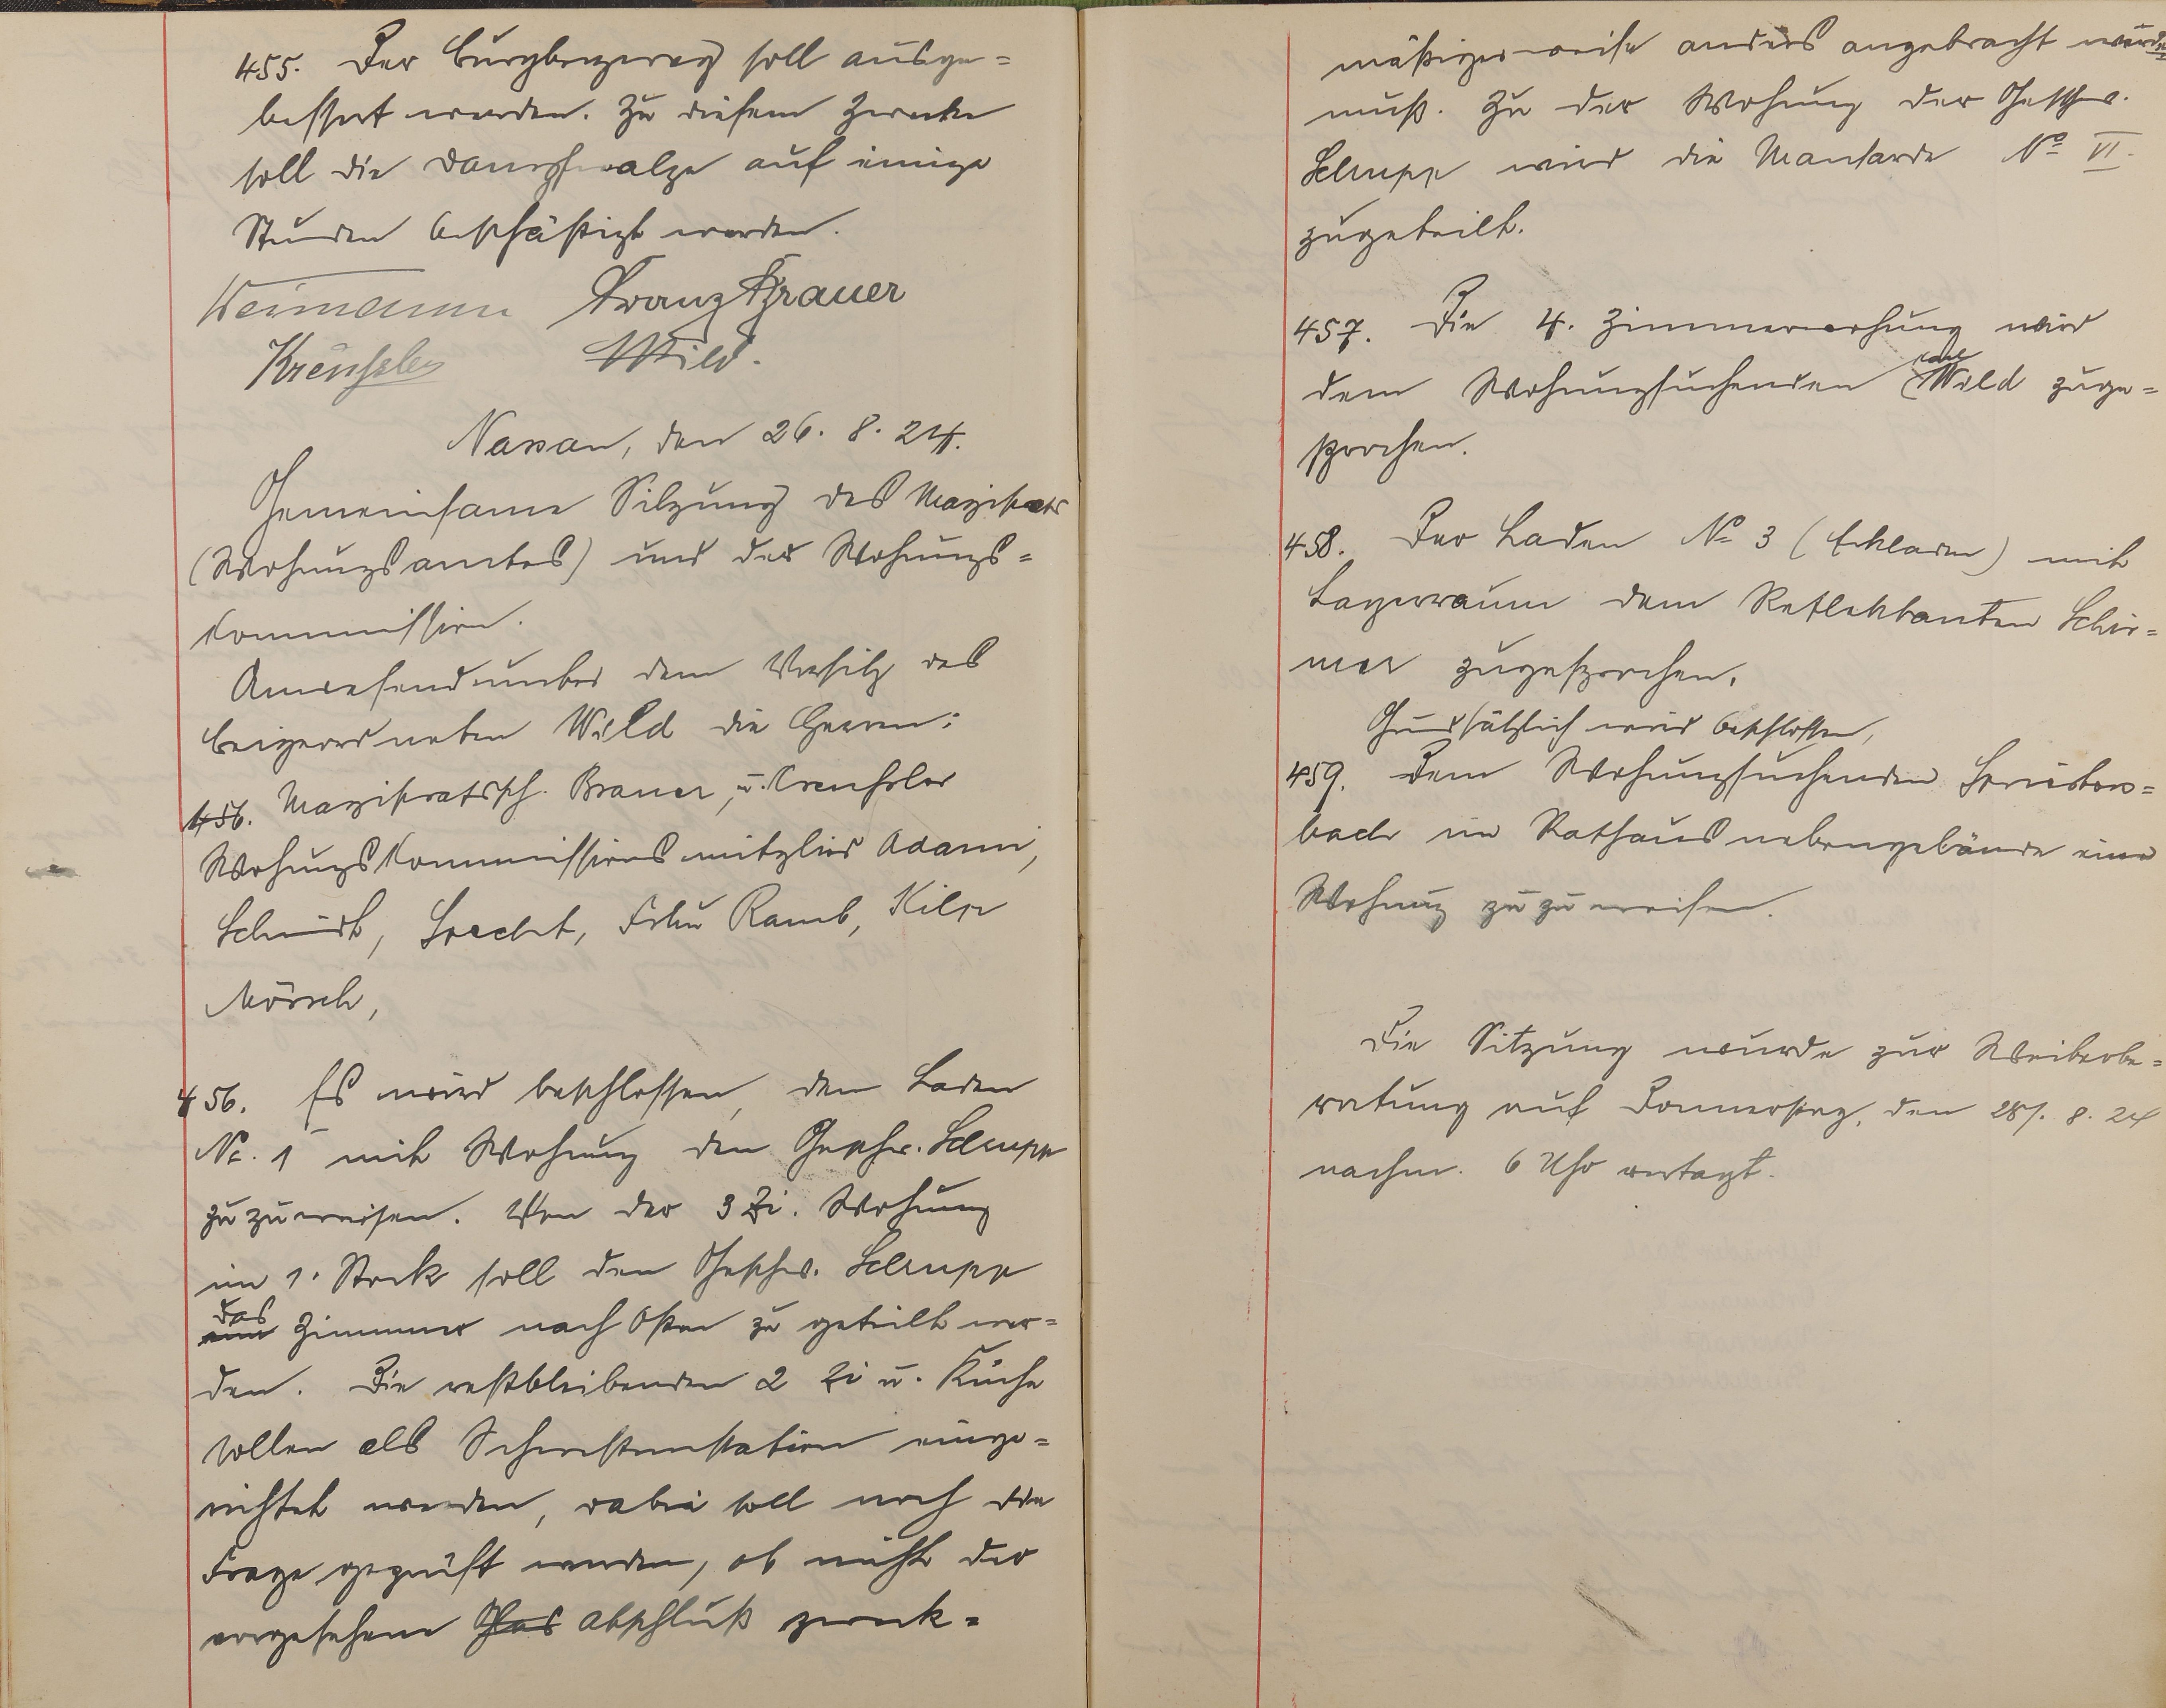 455. Der Burgbergweg soll ausge=
bessert werden. Zu diesem Zwecke
soll die Dampfwalze auf einige
Stunden beschäftigt werden.
Weimann Franz Brauer
Kreußler Wild.
Nassau, den 26. 8. 24.
Gemeinsame Sitzung des Magistrats
(Wohungsamtes) und der Wohungs=
Kommission.
Anwesend unter dem Vorsitz des
Beigeordneten Wild die Herren:
456. Magistratssch. Brauer, u. Kreuhsler
Wohungskommissionsmitglied Adami,
Schmidt, Specht, Ramb, Kilp
Mörsch,
456. Es wird beschlossen, den Laden
No. 1 mit Wohung den Geschw. Schrupp
zuzuweisen. Von der 3 Zi. Wohung
im 1. Stock soll den Geschw. Schrupp
das
ein Zimmer nach Osten zu geteilt wer=
den. Die restbleibenden 2 Zi u. Küche
sollen als Schwesternstation einge=
richtet werden, dabei soll noch die
Frage geprüft werden, ob nicht der
vorgesehene Glas abschluß zweck=
mäßigerweise anders angebracht werden
muß. Zu der Wohung der Geschw.
Schrupp wird die Mansarde No VI.
zugeteilt.
457. Die 4. Zimmerwohung wird
dem Wohungsuchenden Wild zuge=
sprochen.
458. Der Laden No 3 (Eckladen) mit
Lagerraum dem Reflektanten Schir=
mer zugesprochen.
Grundsätzlich wird beschlossen,
459. Dem Wohungsuchenden
bach im Rathausnebengebäude eine
Wohung zuzuweisen.
Die Sitzung wurde zur Weiterbe=
ratung auf Donnerstag, den 28. 8. 24
nachm. 6 Uhr vertagt.